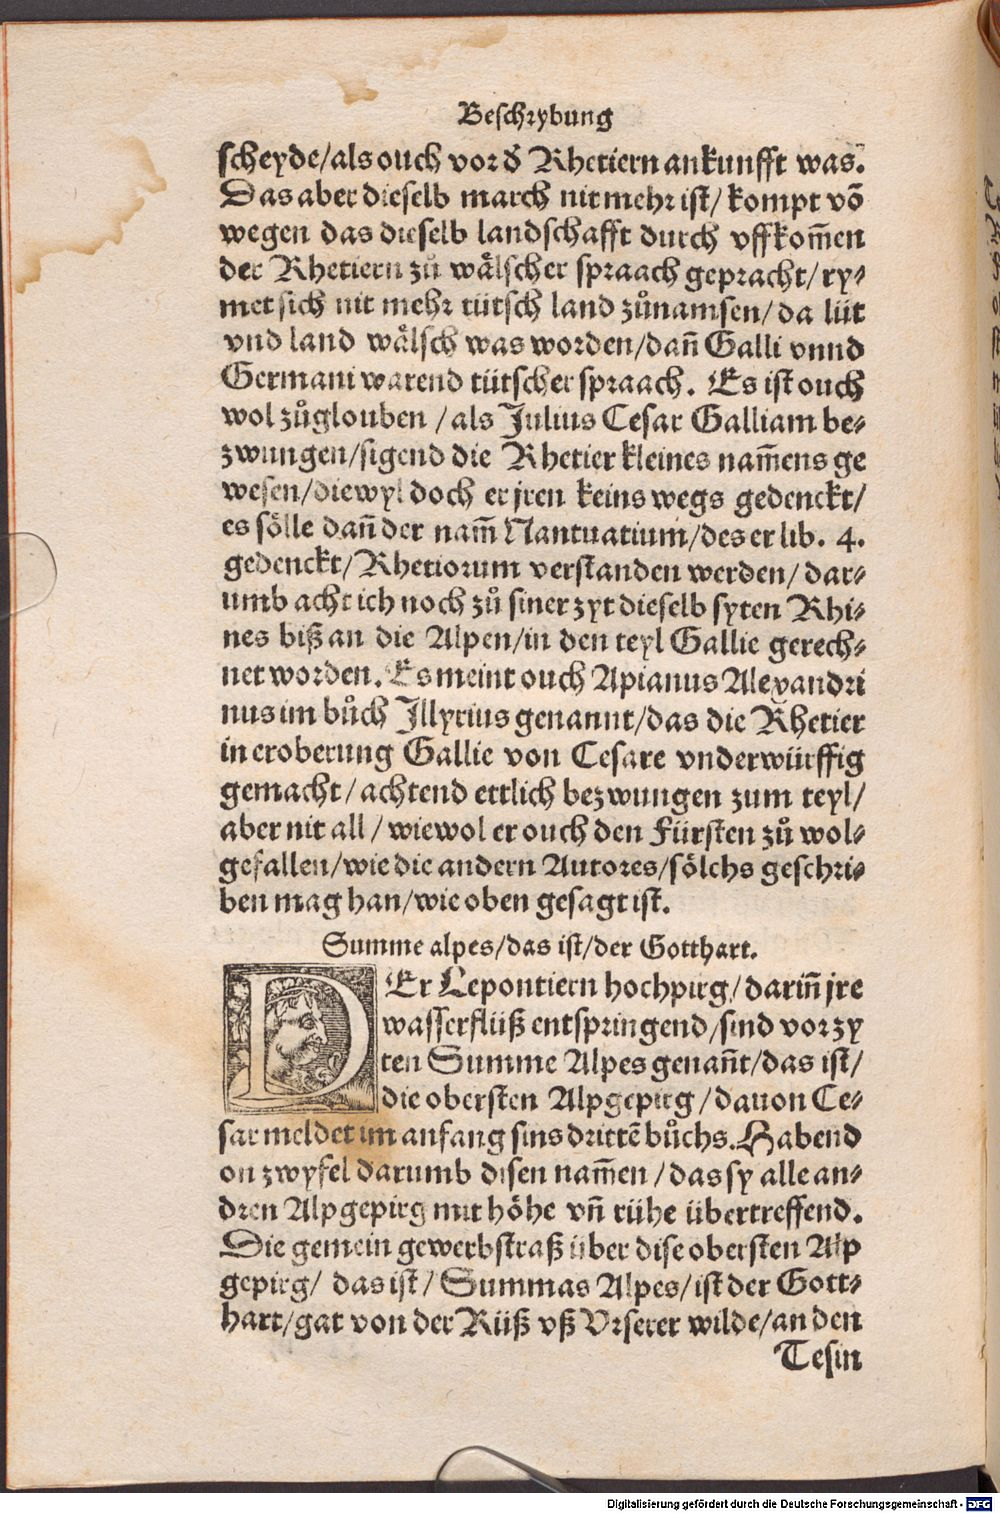 Beschrybung
scheyde/als ouch vor d̕ Rhetiern ankunfft was.
Das aber dieselb march nit mehr ist/ kompt võ
wegen das dieselb landschafft durch vffkom̃en
der Rhetiern zů wälscher spraach gepracht/ ry-
met sich nit mehr tütsch land zůnamsen/ da lüt
vnd land wälsch was worden/dañ Galli vnnd
Germani warend tütscher spraach. Es ist ouch
wol zůglouben /als Julius Cesar Galliam be-
zwungen/sigend die Rhetier kleines nam̃ens ge
wesen/diewyl doch er jren keins wegs gedenckt/
es sölle dañ der nam̃ Nantuatium/des er lib. 4.
gedenckt/ Rhetiorum verstanden werden/ dar-
umb acht ich noch zů siner zyt dieselb syten Rhi-
nes biß an die Alpen/in den teyl Gallie gerech-
net worden. Es meint ouch Apianus Alexandri
nus im bůch Illyrius genannt/das die Rhetier
in eroberung Gallie von Cesare vnderwürffig
gemacht/ achtend ettlich bezwungen zum teyl/
aber nit all / wiewol er ouch den Fürsten zů wol-
gefallen/wie die andern Autores/sölchs geschri-
ben mag han/wie oben gesagt ist.
Summe alpes/das ist/der Gotthart.
DEr Lepontiern hochpirg/ dariñ jre
wasserflüß entspringend/sind vor zy
ten Summe Alpes genañt/das ist/
die obersten Alpgepirg /dauon Ce-
sar meldet im anfang sins drittẽ bůchs. Habend
on zwyfel darumb disen nam̃en /das sy alle an-
dren Alpgepirg mit höhe vñ rühe übertreffend.
Die gemein gewerbstraß über dise obersten Alp
gepirg/ das ist/ Summas Alpes/ist der Gott-
hart/gat von der Rüß vß Vrserer wilde/an den
Tesin
Digitalisierung gefördert durch die Deutsche Forschungsgemeinschaft - DFG